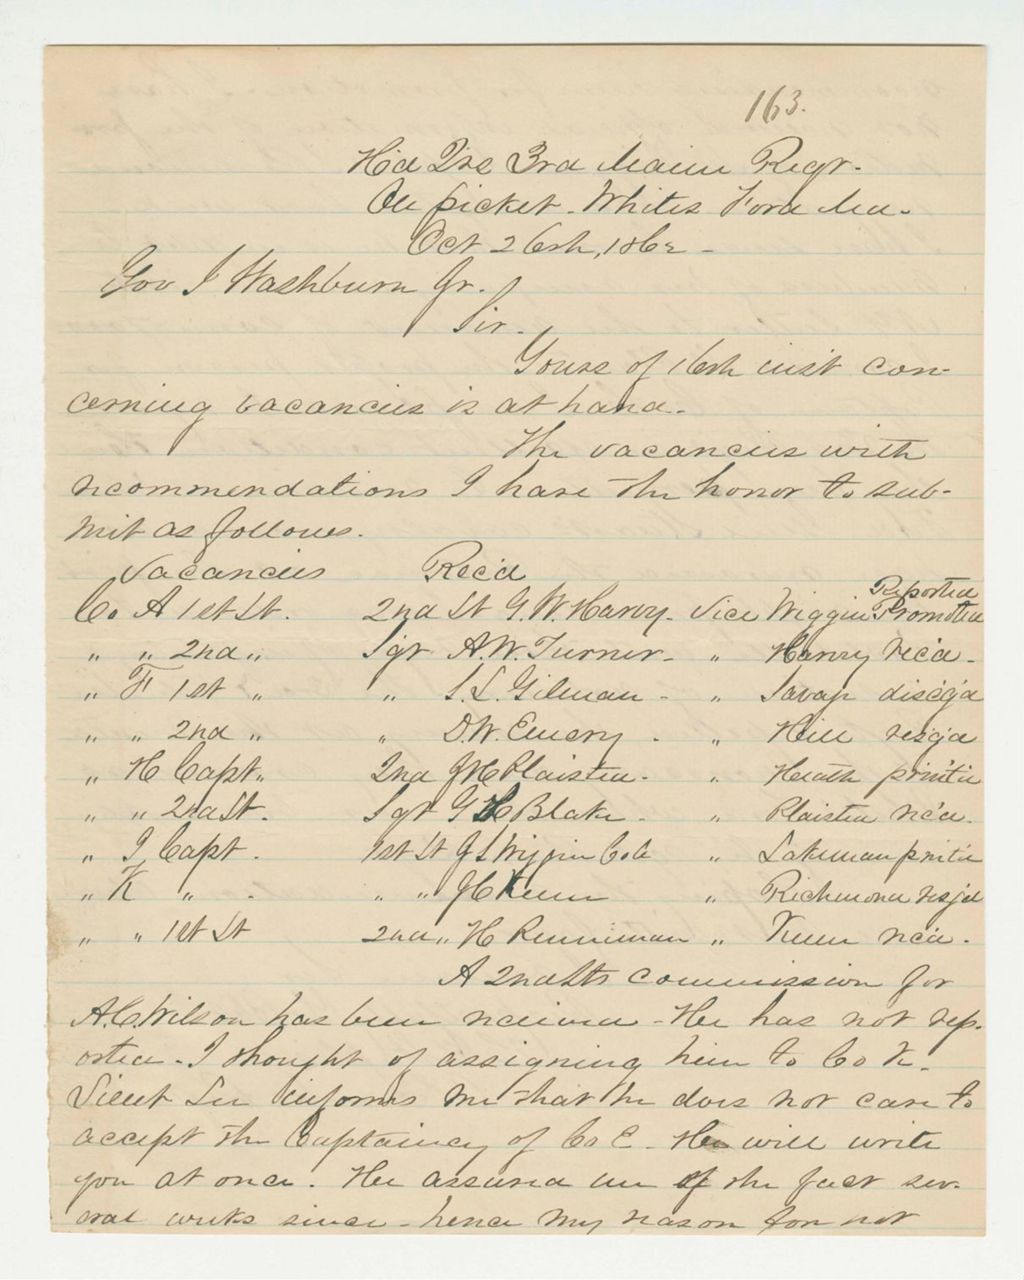 163.
Hd Qrs 3rd Maine Regt.
On picket - Whites Ford Md.
Oct 26th, 1862 -
Gov I Washburn Jr.
Sir.
Yours of 16th inst con-
cerning vacancies is at hand.
The vacancies with
recommendations I have the honor to sub-
mit as follows.
Vacancies Rec'd
Co A 1st Lt. 2nd Lt G. W. Harvy. Vice Wiggin Reported Promoted
" " 2nd " Sgt A. W. Turner - " Harvy rec'd -
" F 1st " " S. L. Gilman - " Savage disc'g'd
" " 2nd " " D. W. Emery . " Hill resg'd
" H Capt " 2nd J H Plaisted - " Heath p'm't'd
" " 2nd Lt. Sgt G H Blake . " Plaisted rec'd.
" I Capt . 1st Lt J S Wiggin Co A " Lakeman p'm't'd
" K " . " " J C Keen " Richmond resg'd
" " 1st Lt 2nd " H Penniman " Keen rec'd .
A 2nd Lts commission for
A. C. Wilson has been received - He has not rep-
orted - I thought of assigning him to Co K.
Lieut Lee informs me that he does not care to
accept the Captaincy of Co E. He will write
you at once. He assured me of the fact sev-
eral weeks since - hence my reason for not